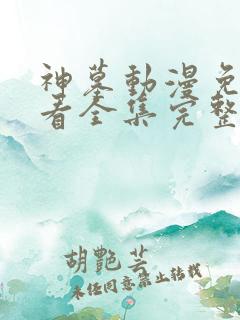 神墓動漫免
看全集完整
胡艷芸
未经同意禁止转载